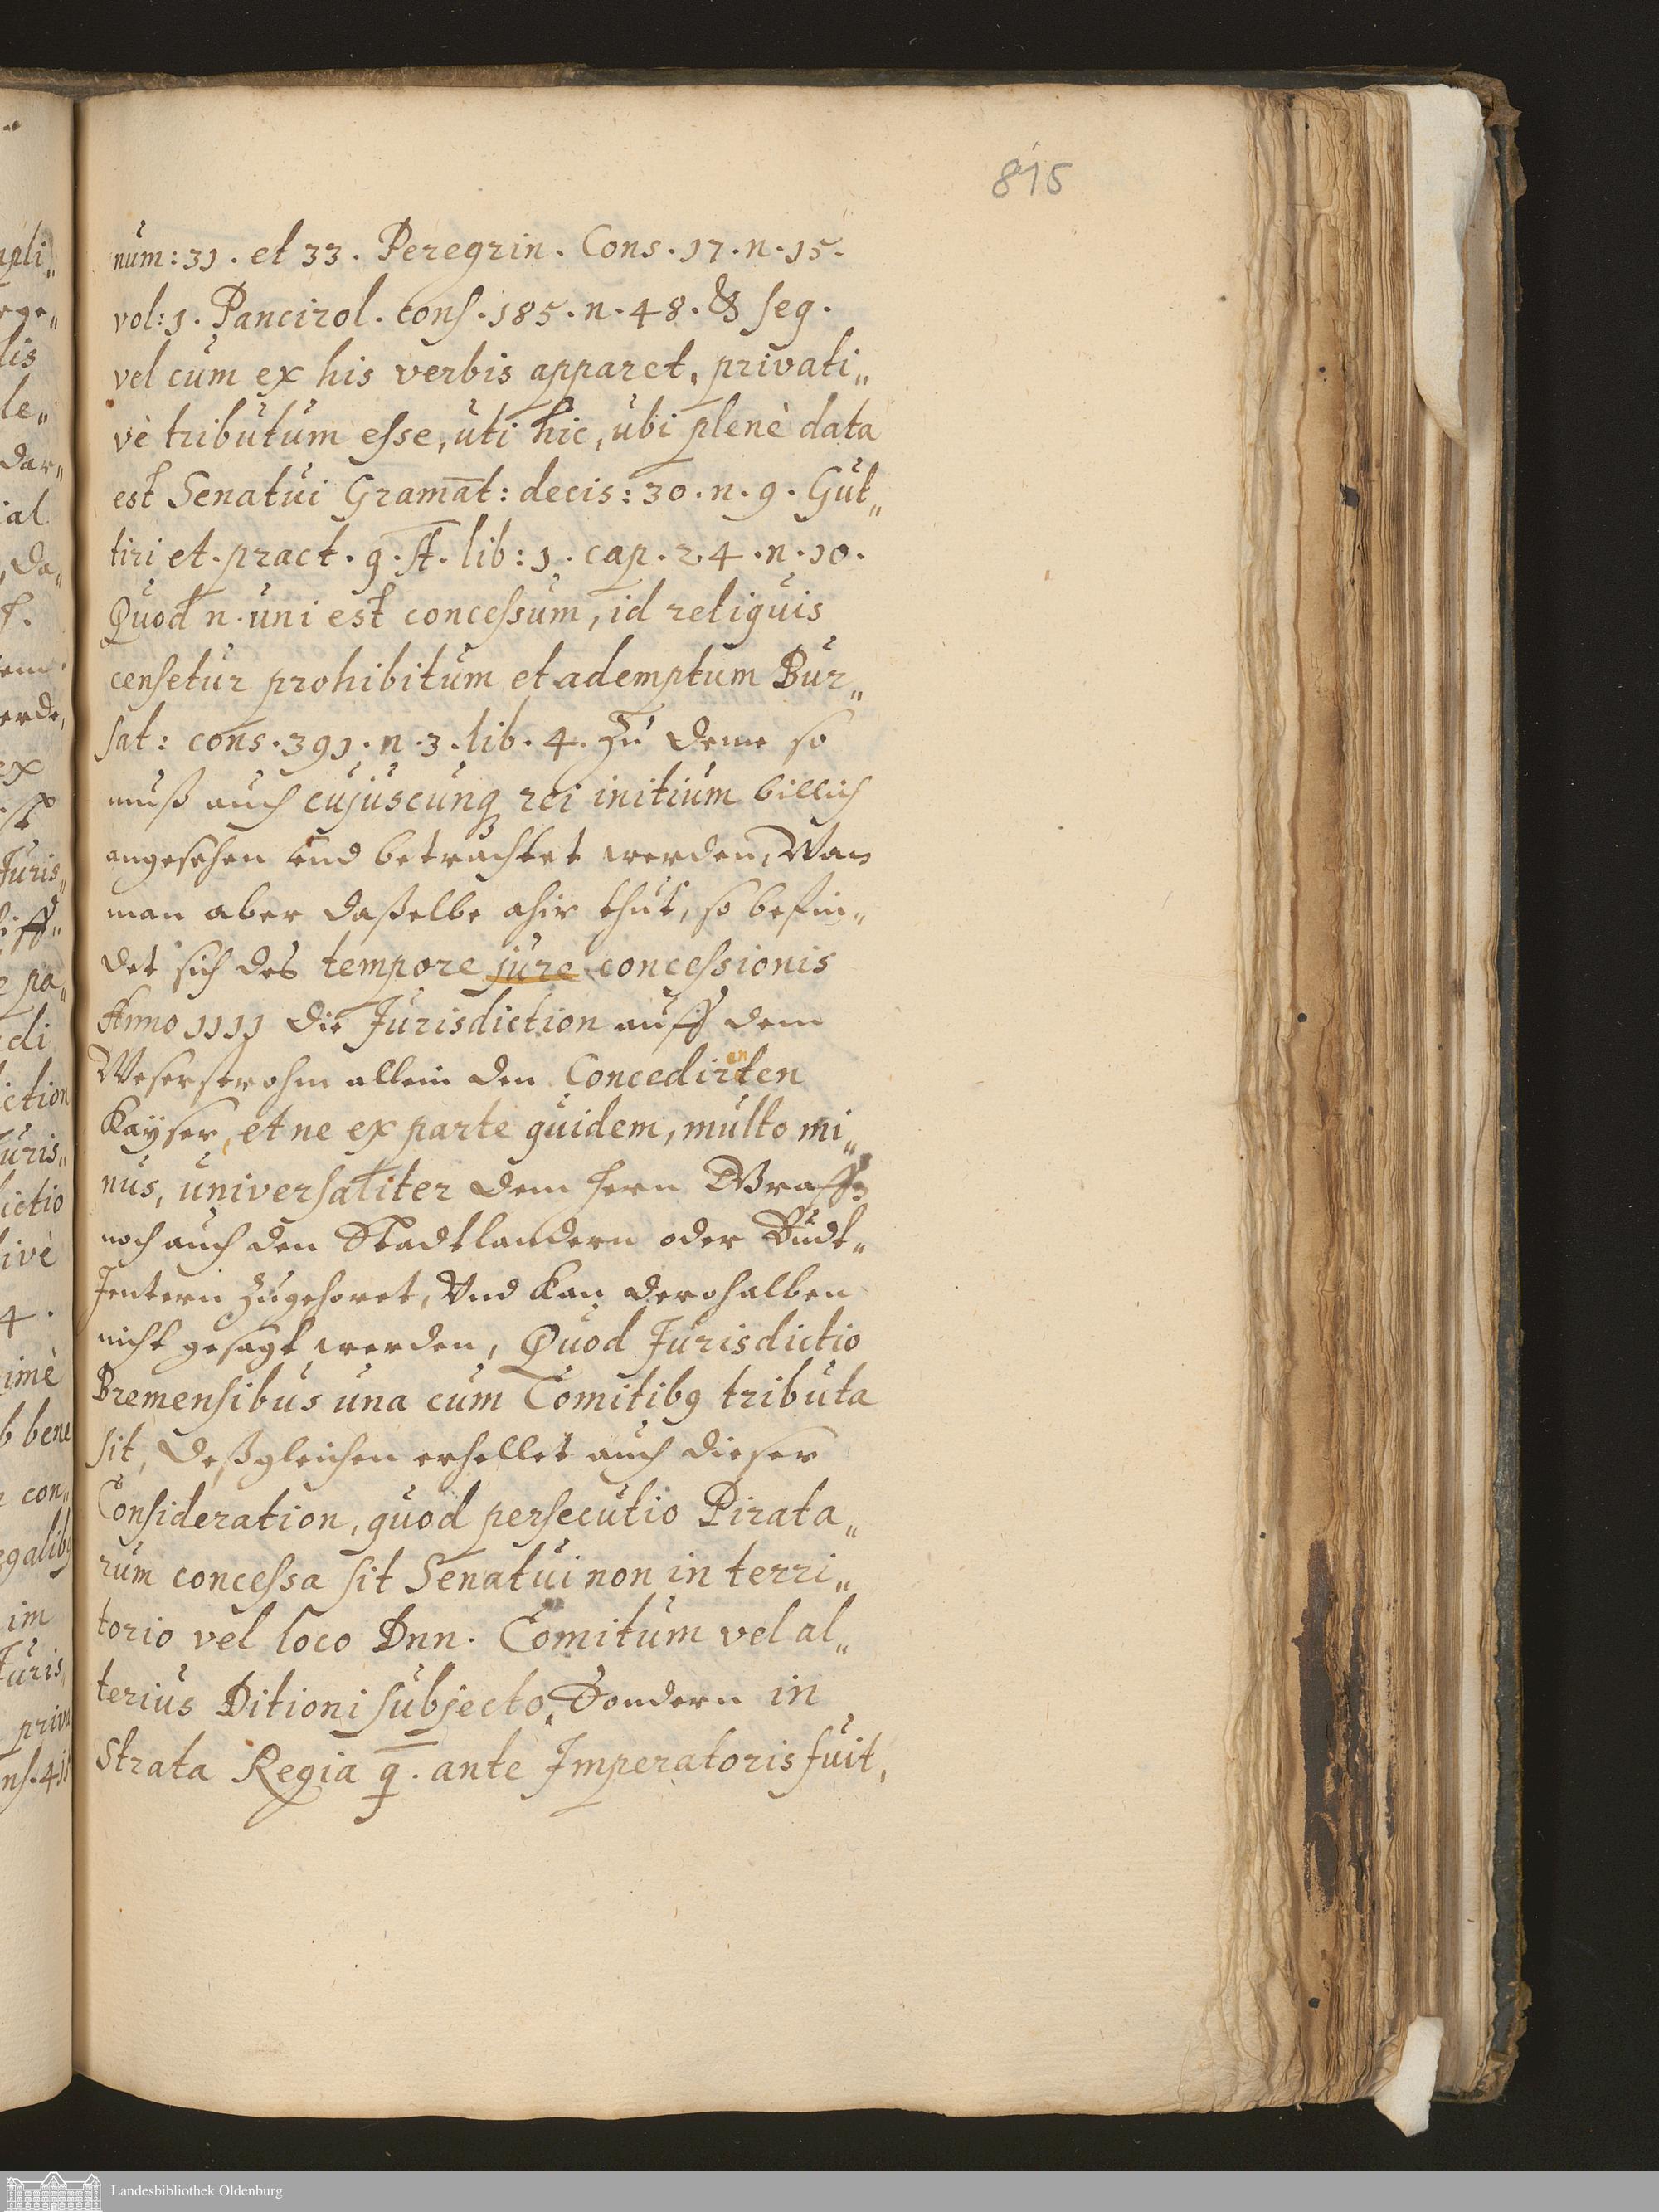 815
num: 31. et 33. Peregrin. Cons. 17. n. 15.
vol: 1. Pancirol. cons. 185. n. 48. & seq.
vel cum ex his verbis apparet, privati„
vè tributum esse, uti hic, ubi plenè data
est Senatui Gramat: decis: 30. n. 9. Gut„
tiri et. pract. q. lib: 1. cap. 24. n. 10.
Quod n. uni est concessum, id reliquis
censetur prohibitum et ademptum Bur„
sat: cons. 391. n. 3. lib. 4. Zu deme so
muß auch cujuscunq rei initium billich
angesehen und betrachtet werden, Wan
man aber daßelbe ahir thut, so befin„
det sich des tempore jure concessionis
Anno 1111 die Jurisdiction auff dem
Weserstrohm allein den Concedirten
en
Kayser, et ne ex parte quidem, multo mi„
nus, universaliter dem hern Graffen
noch auch den Stadtlandern oder Budt„
Jentern zugehoret, Und Kan derohalben
nicht gesagt werden, Quod Jurisdictio
Bremensibus una cum Comitibq tributa
sit, Deßgleichen erhellet auch dieser
Consideration, quod persecutio Pirata„
rum concessa sit Senatui non in terri„
torio vel loco Dnn. Comitum vel al„
terius Ditioni subjecto, Sondern in
Strata Regia q. ante Imperatoris fuit,
Landesbibliothek Oldenburg